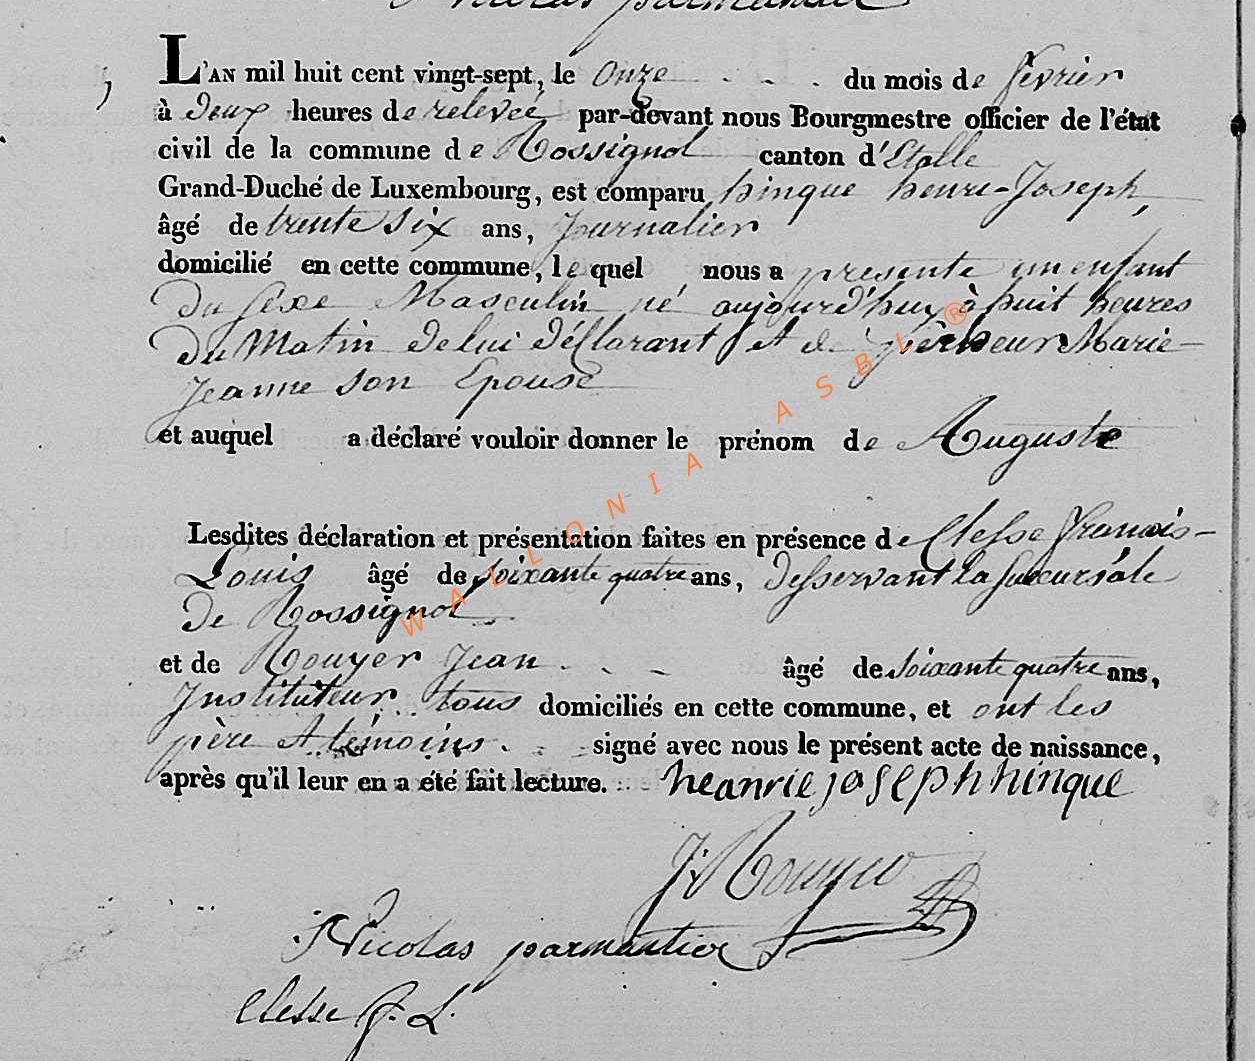 Nicolas parmentier
L'AN mil huit cent vingt-sept, le Onze du mois de février
à Deux heures de relevée, par-devant nous Bourgmestre officier de l'état
civil de la commune de Rossignol canton d'Etalle
Grand-Duché de Luxembourg, est comparu hinque henri-Joseph,
âgé de trente Six ans, Journalier
domicilié en cette commune, le quel nous a presenté un enfant
Du Sexe Masculin né aujourd'huy à huit heures
Du Matin De lui déClarant Et de Marie-
Jeanne son Epouse
et auquel a déclaré vouloir donner le prénom de Auguste
Lesdites déclaration et présentation faites en présence de Clesse Francois-
Louis âgé de soixante quatre ans, Desservant la Succursale
De Rossignol
et de Rouyer Jean âgé de Soixante quatre ans,
Instituteur tous domiciliés en cette commune, et ont les
père Et témoins signé avec nous le présent acte de naissance,
après qu'il leur en a été fait lecture. heanrie joseph hinque
J. Rouyer
Nicolas parmentier
Clesse F. L.
WALLONIA ASBL ®